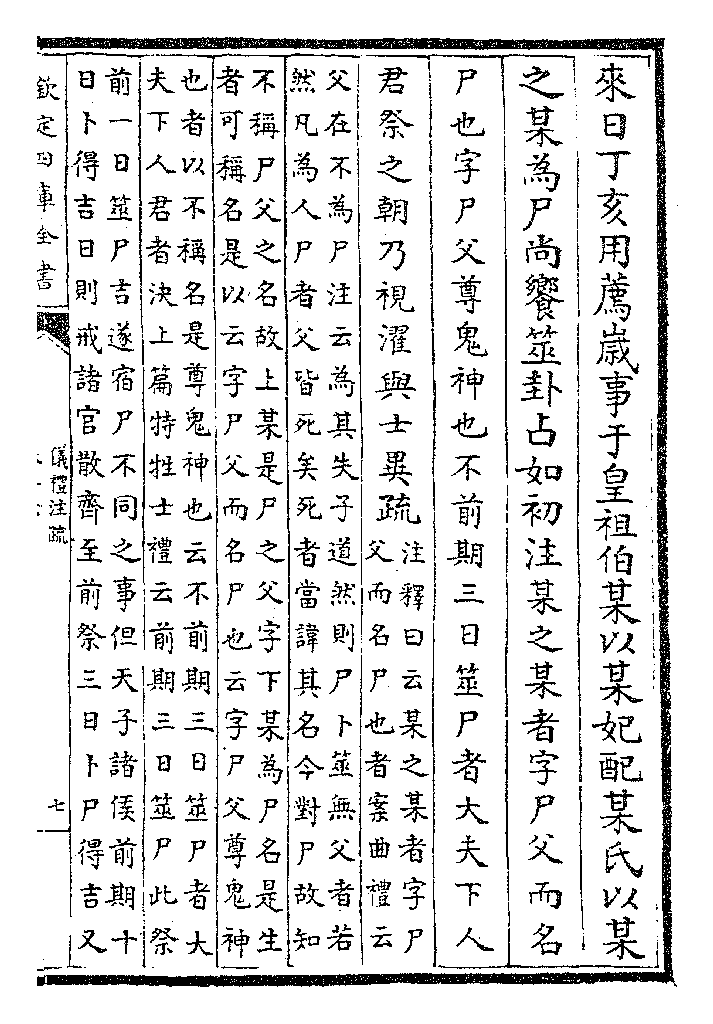 來日丁亥用薦歳事于皇祖伯某以某妃配某氏以某
之某為尸尚饗筮卦占如初注某之某者字尸父而名
尸也字尸父尊鬼神也不前期三日筮尸者大夫下人
君祭之朝乃視濯與士異疏
注釋曰云某之某者字尸
父而名尸也者案曲禮云
父在不為尸注云為其失子道然則尸卜筮無父者若
然凡為人尸者父皆死矣死者當諱其名今對尸故知
不稱尸父之名故上某是尸之父字下某為尸名是生
者可稱名是以云字尸父而名尸也云字尸父尊鬼神
也者以不稱名是尊鬼神也云不前期三日筮尸者大
夫下人君者決上篇特牲士禮云前期三日筮尸此祭
前一日筮尸吉遂宿尸不同之事但天子諸侯前期十
日卜得吉日則戒諸官散齊至前祭三日卜尸得吉又
欽定四庫全書
儀禮注疏
七